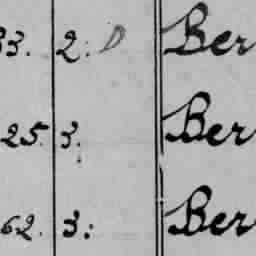 33. 2. D Ber
25. 3. Ber
62. 3: Ber